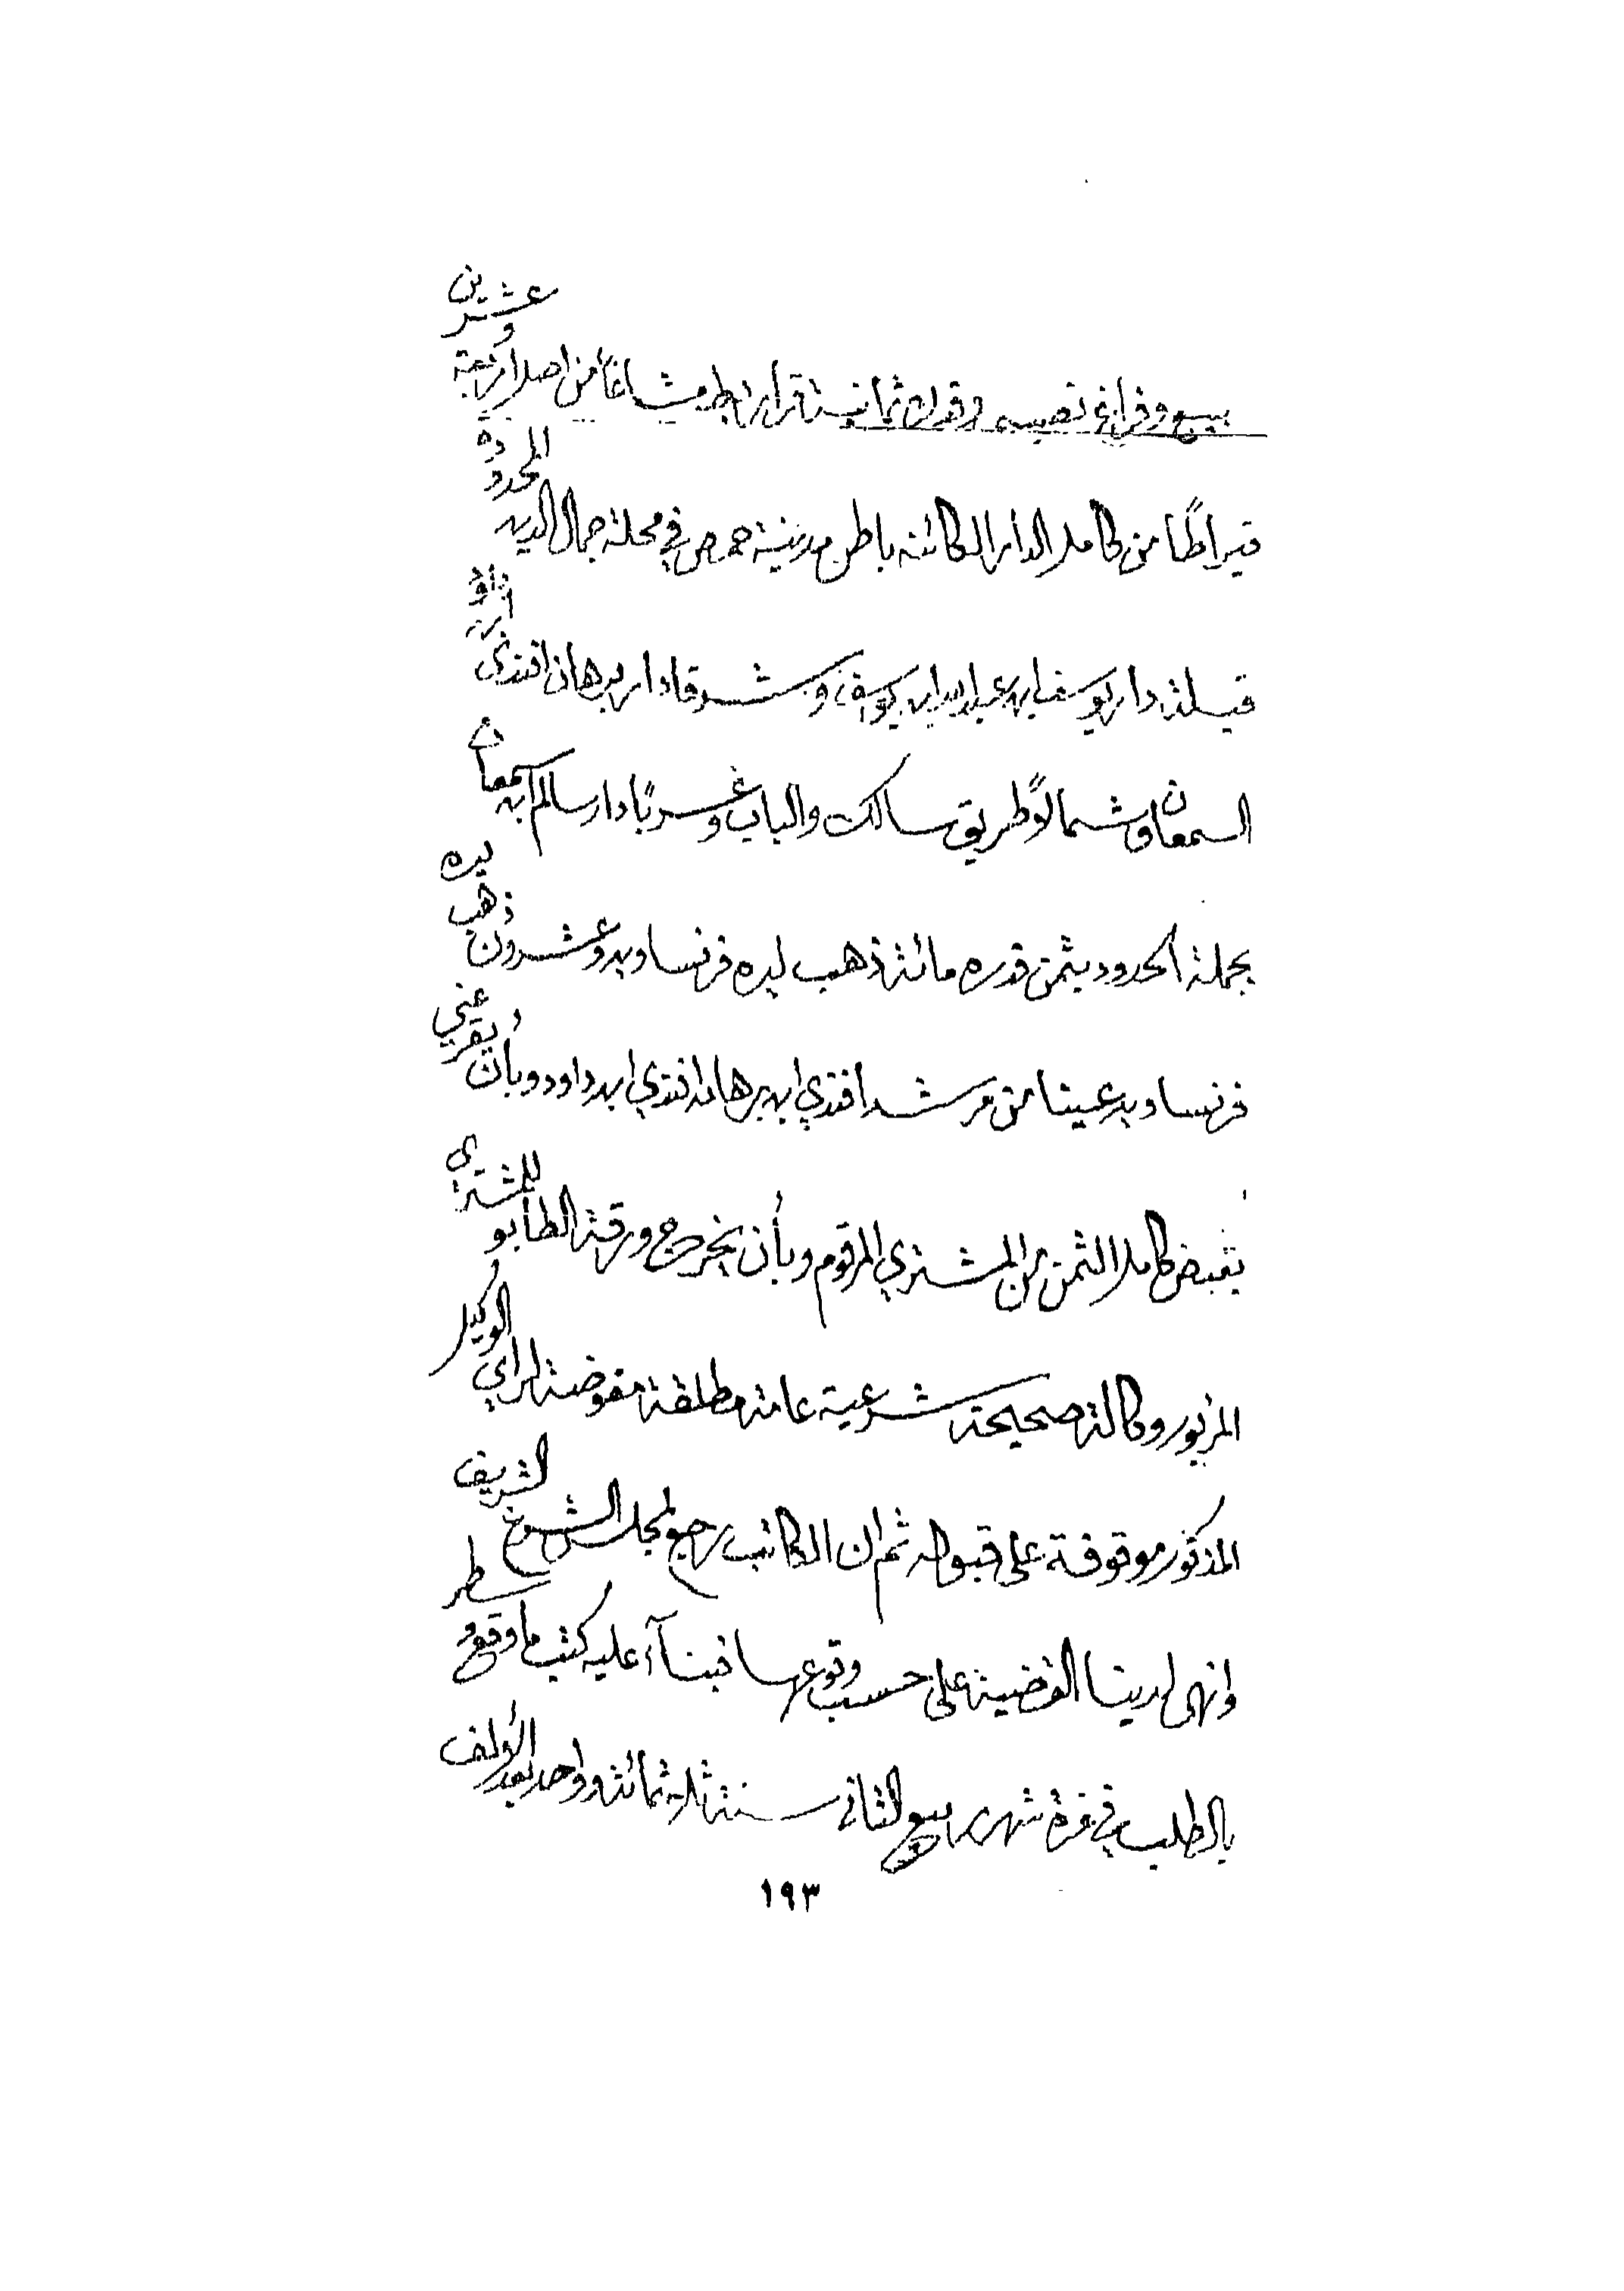 ببيع وفراغ نصيبه وقدره ثمانية قراريط مشاعًا من اصل اربعة وعشرين
قيراطًا من كامل الدار الكائنة باطن مدينة حمص في محلة جمال الدين المحدودة
قبلة دار يوسف ابن عبدالله ابن يوسف وشرقا دار برهان افندي ابن داود
السمعان وشمالاً طريق سالك والباب وغربًا دار سالم ابن سمعان
بجملة الحدود بثمن قدره مائة ذهب ليره فرنساويه وعشرون ذهب ليره
فرنساويه عينا من مرشد افندي ابن برهان افندي ابن داود وبأن يقر عني
بقبض كامل الثمن من المشتري المرقوم وبأن يخرج ورقة الطابو للمشتري
المزبور وكالة صحيحة شرعية عامة مطلقة مفوضة لرأي الوكيل
المذكور موقوفة على قبوله ثم ان الكاتب رجع لمجلس الشرع الشريف
وانهى لدينا القضية على حسب وقوعها فبناآء عليه كتب ما وقع وسطر
بالطلب في غرة شهر ربيع الثاني سنة ثلاثمائة وواحد بعد الألف
١٩٣